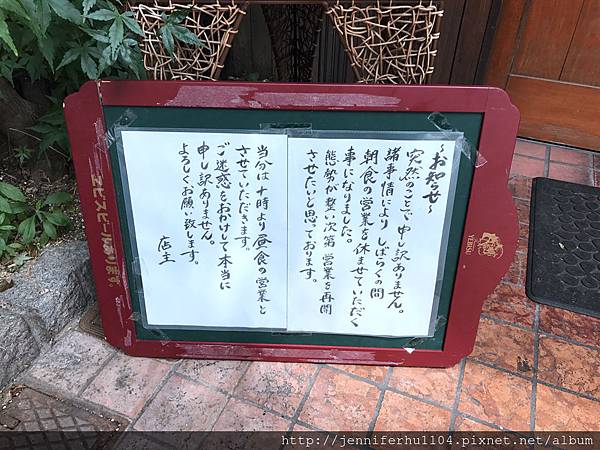 ～お知らせ～
突然のことで申し訳ありません。
諸事情により しばらくの間
朝食の営業を休ませていただく
事になりました。
態勢が整い次第 営業を再開
させたいと思っております。
当分は十時より昼食の営業と
させていただきます。
ご迷惑をおかけして本当に
申し訳ありません。
よろしくお願い致します。
店主
ヱビスビールあります。
YEBISU
http://jenniferhu1104.pixnet.net/album